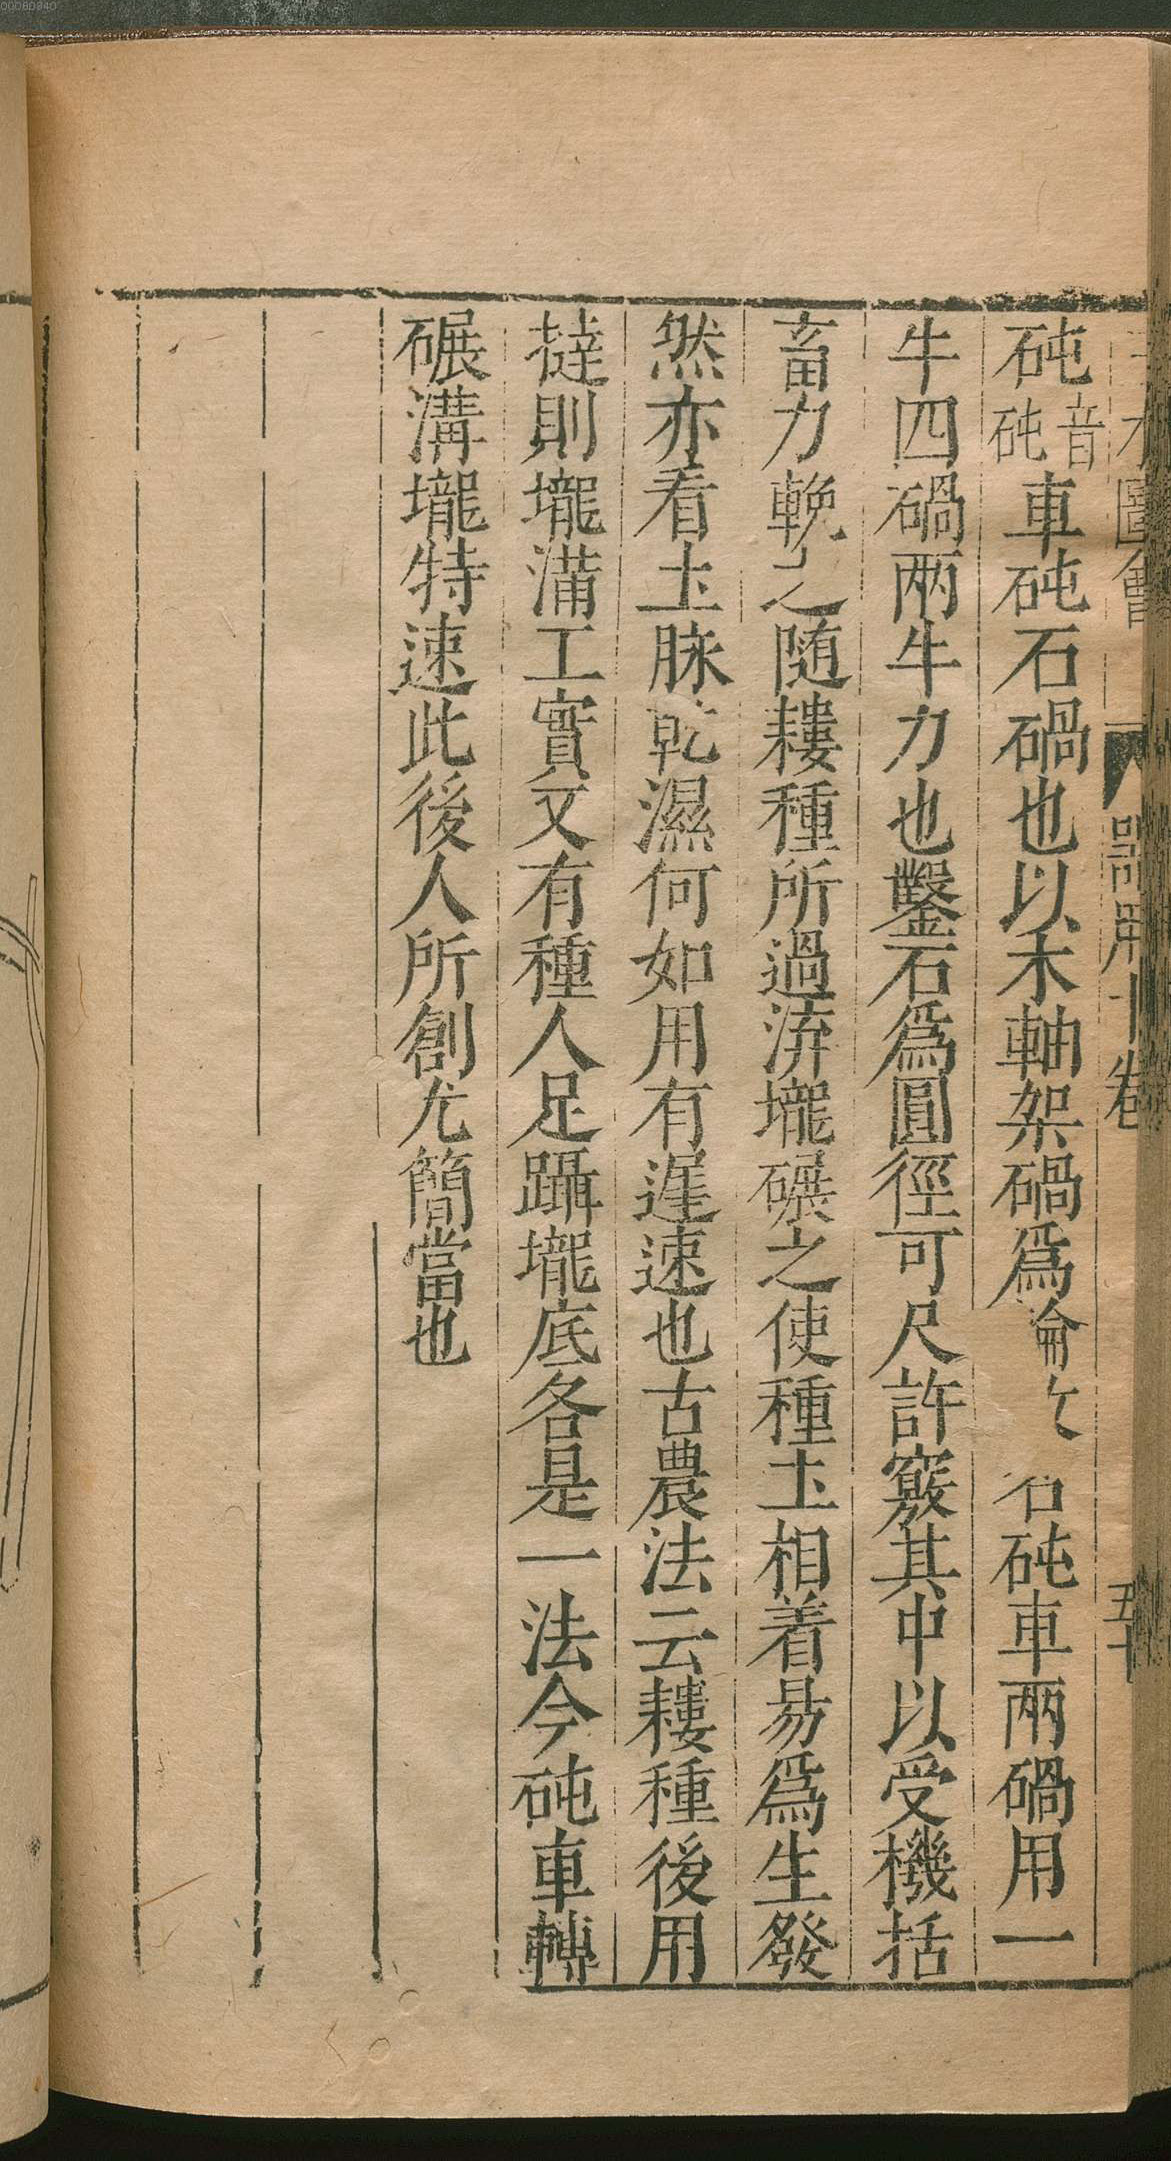 圖會
器用十卷
五十
砘音砘車砘石碢也以木軸架碢爲淪石砘車兩碢用一
牛四碢两牛力也鑿石爲圓徑可尺許竅其中以受機括
畜力輓之随耬種所過㳎壠碾之使種土相着易爲生發
然亦看土脉乾濕何如用有遲速也古農法云耬種後用
撻則壠滿工實文有種人足躡壠底各是一法今砘車轉
碾溝壠特速此後人所創尤簡當也
00080840